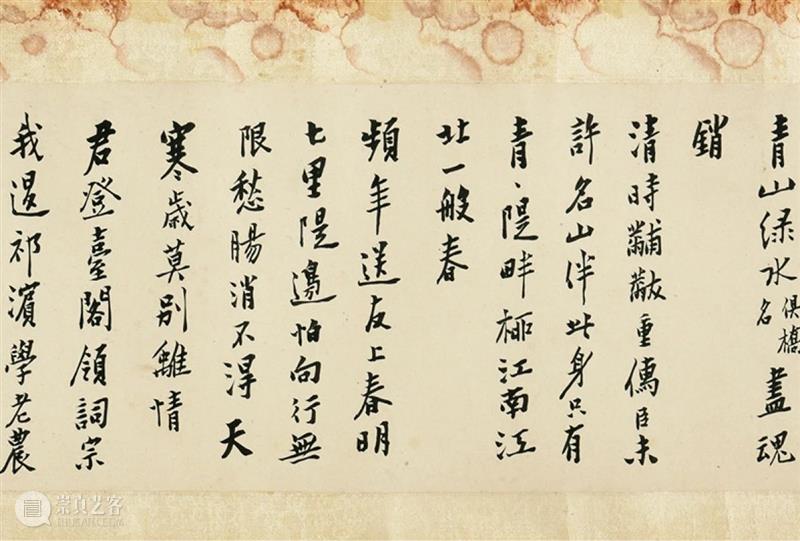 青山绿水俱橋名盡魂
銷
清時黼黻重儒臣未
許名山伴此身只有
青、隄畔柳江南江
北一般春
頻年送友上春明
七里隄邊怕向行無
限愁腸消不得天
寒歲莫別離情
君登臺閣領詞宗
我退祁濱學老農
崇真艺客